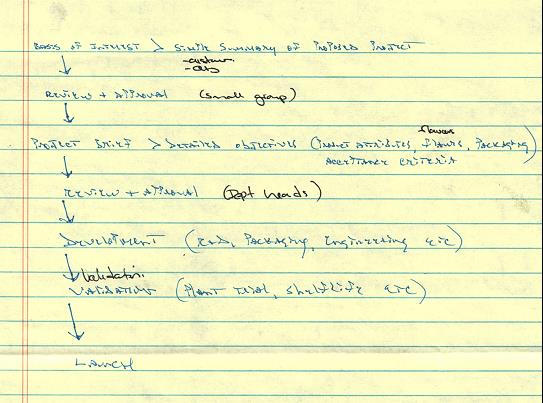 BASIS OF INTEREST > SIMPLE SUMMARY OF PROPOSED PROJECT
- custom.
- obj
REVIEW + APPROVAL (small group)
flavors
PROJECT BRIEF > DETAILED OBJECTIVES (PRODUCT ATTRIBUTES, FLAVORS, PACKAGING)
ACCEPTANCE CRITERIA
REVIEW + APPROVAL (Dept heads)
DEVELOPMENT (R+D, PACKAGING, Engineering etc)
Validation
VALIDATION (PLANT TRIAL, Shelflife etc)
LAUNCH